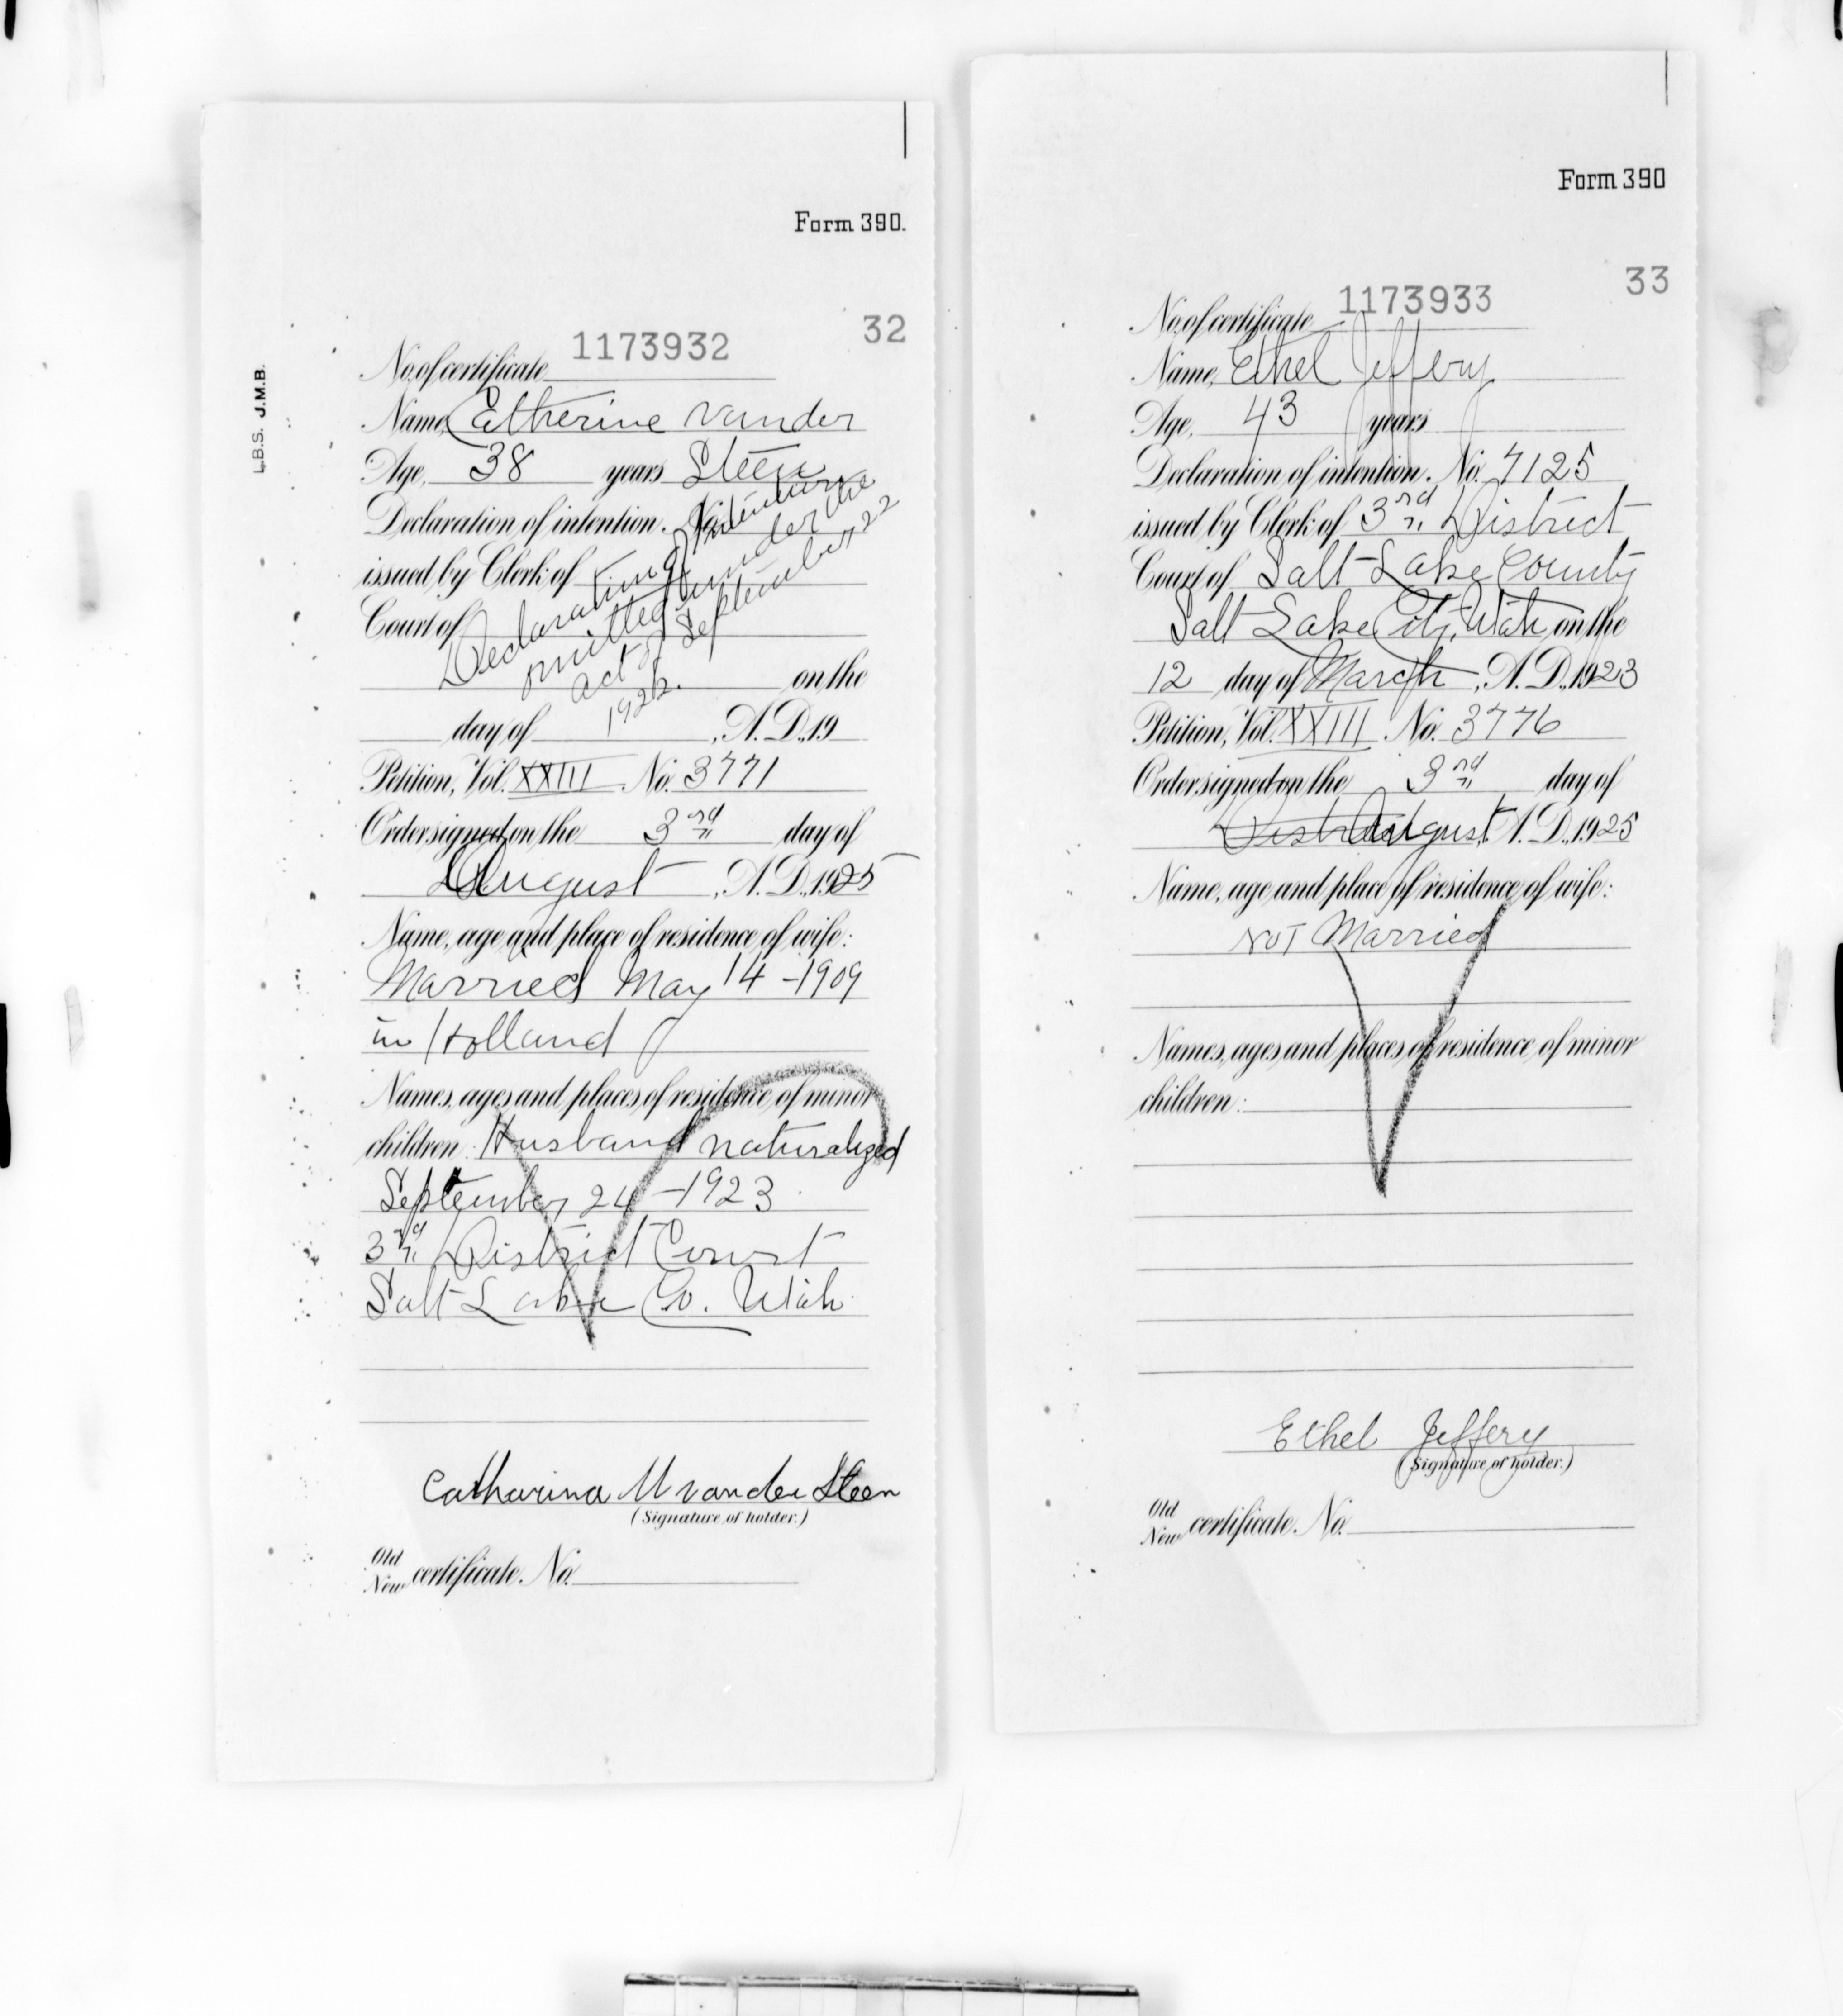 Form 390.
L.B.S. J.M.B.
32
No. of certificate 1173932
Name, Catherine Vander
Age, 38 years Steen
Declaration of intention. No.
issued by Clerk of
Court of
Declaration of Intention
omitted under the
act of September 22
1922.
on the
day of , A.D., 19
Petition, Vol. XXIII No. 3771
Order signed on the 3rd day of
August , A.D., 1925
Name, age and place of residence of wife:
Married May 14 - 1909
in Holland
Names, ages and places of residence of minor
children: Husband naturalized
September 24 - 1923
3rd District Court
Salt Lake Co. Utah
Catharina M van der Steen
(Signature of holder.)
Old
New certificate. No.
Form 390
33
No. of certificate 1173933
Name, Ethel Jeffery
Age, 43 years
Declaration of intention. No. 7125
issued by Clerk of 3rd District
Court of Salt Lake County
Salt Lake City, Utah on the
12 day of March , A.D., 1923
Petition, Vol. XXIII No. 3776
Order signed on the 3rd day of
August, A.D., 1925
Name, age and place of residence of wife:
Not Married
Names, ages and places of residence of minor
children:
Ethel Jeffery
(Signature of holder.)
Old
New certificate. No.